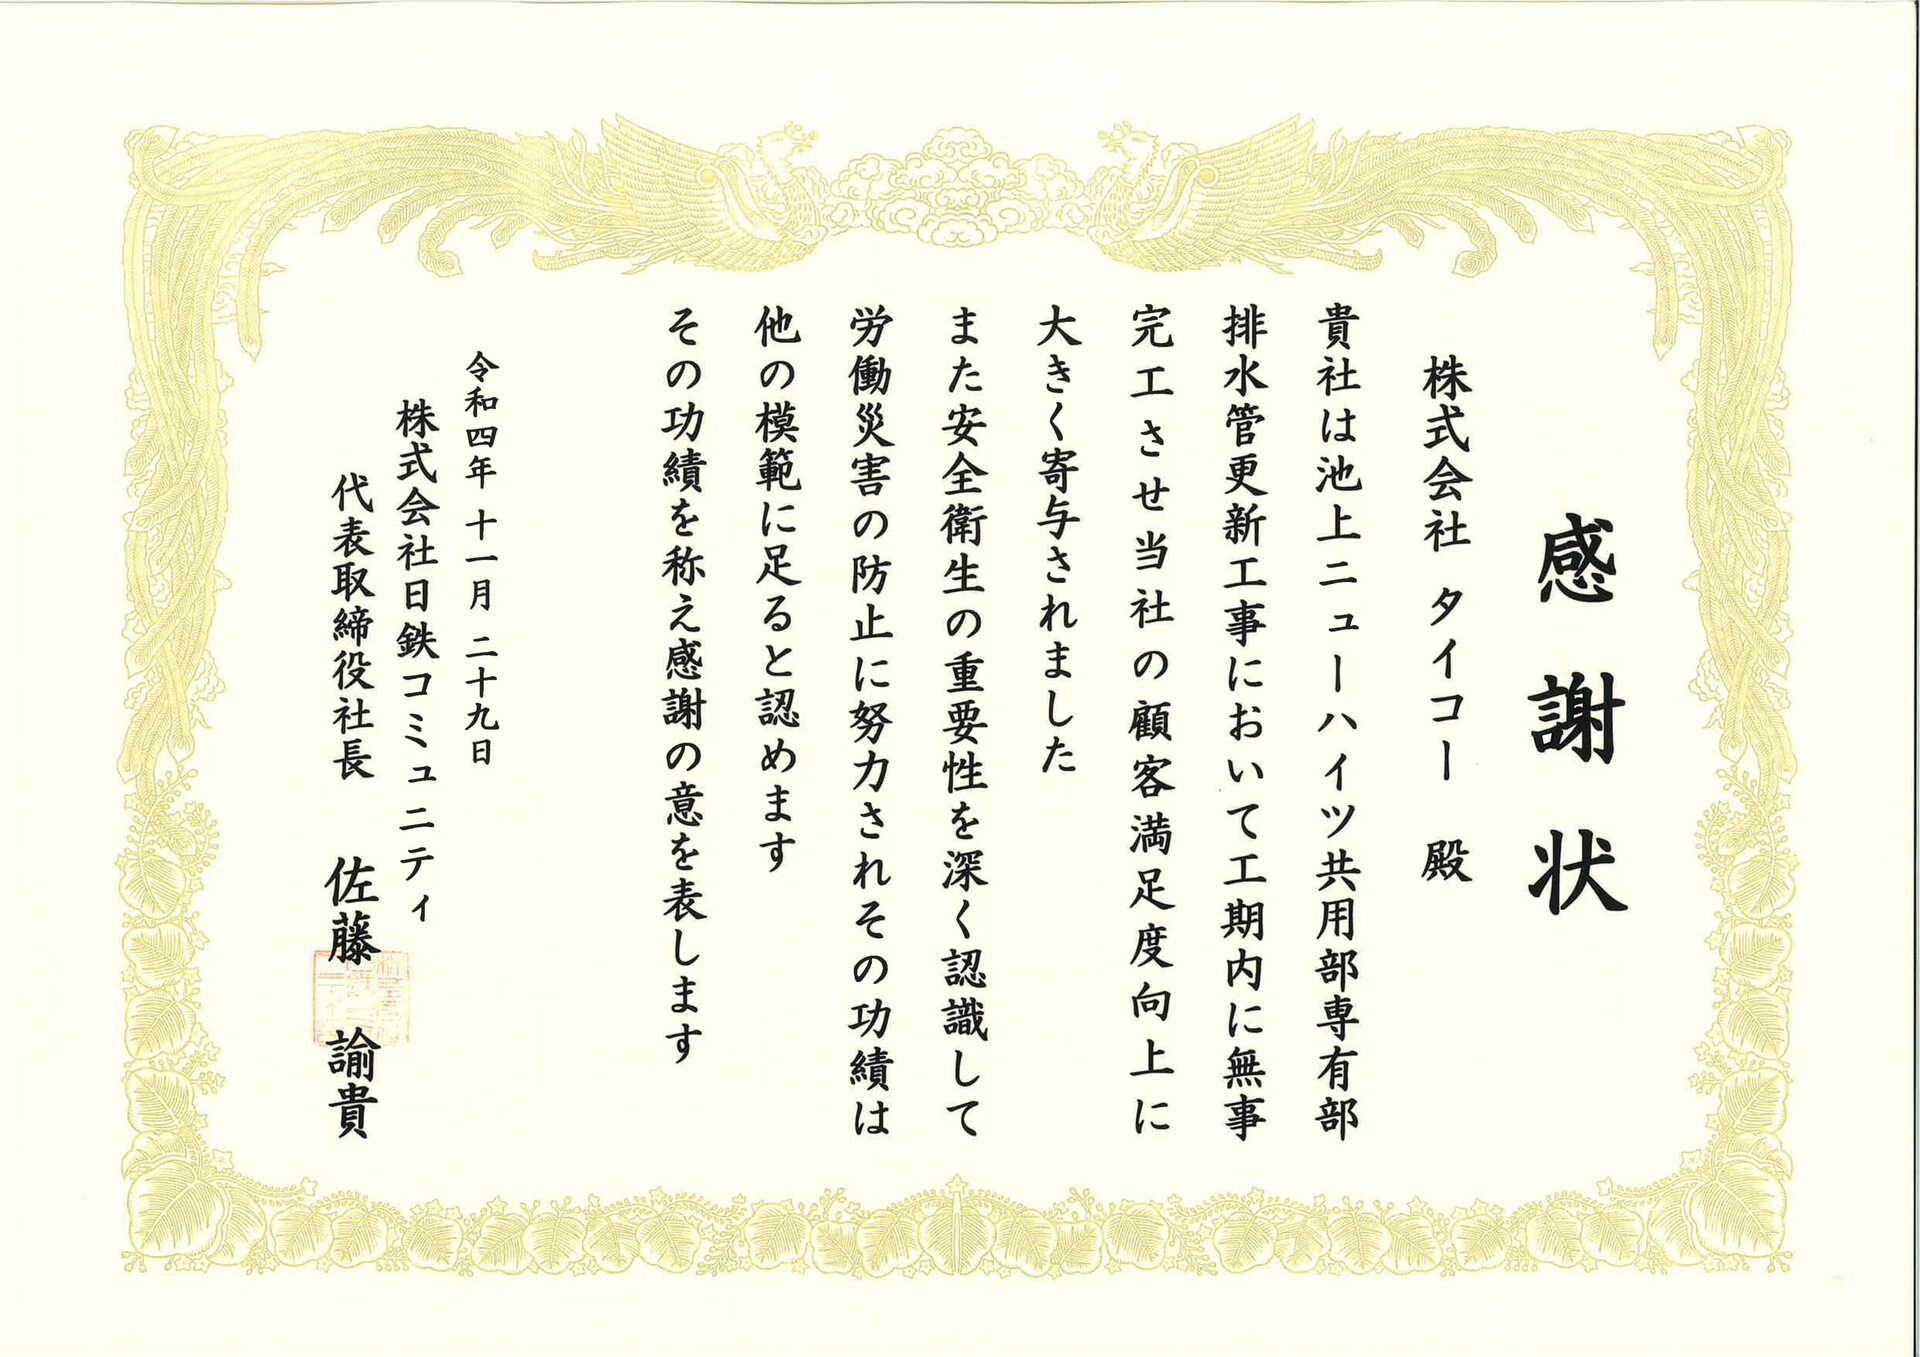 感謝状
株式会社 タイコー 殿
貴社は池上ニューハイツ共用部専有部
排水管更新工事において工期内に無事
完工させ当社の顧客満足度向上に
大きく寄与されました
また安全衛生の重要性を深く認識して
労働災害の防止に努力されその功績は
他の模範に足ると認めます
その功績を称え感謝の意を表します
令和四年 十一月 二十九日
株式会社日鉄コミュニティ
代表取締役社長 佐藤 諭貴